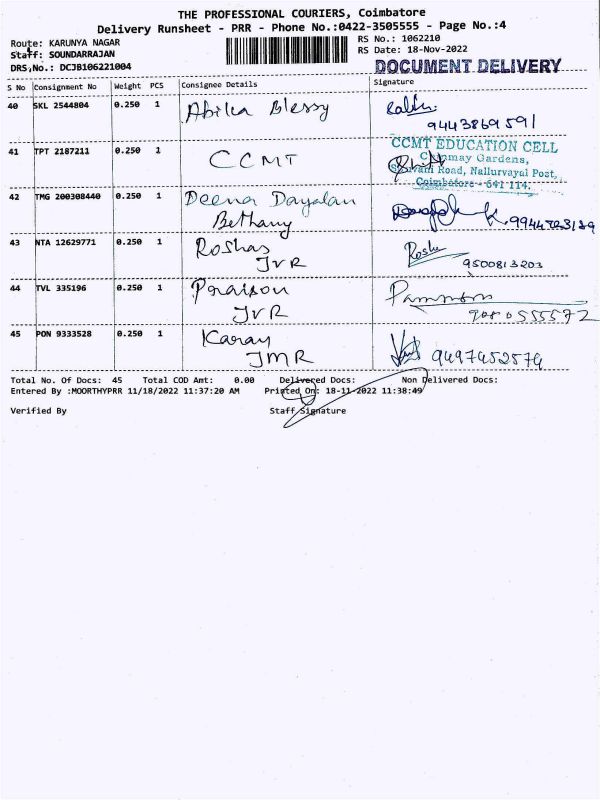 THE PROFESSIONAL COURIERS, Coimbatore
Delivery Runsheet - PRR - Phone No.:0422-3505555 - Page No.:4
Route: KARUNYA NAGAR RS No.: 1062210
Staff: SOUNDARRAJAN RS Date: 18-Nov-2022
DRS,No.: DCJB106221004 DOCUMENT DELIVERY
S No Consignment No Weight PCS Consignee Details Signature
40 SKL 2544804 0.250 1 Abilea Blessy
9443869591
41 TPT 2187211 0.250 1 CCMT CCMT EDUCATION CELL
Chinmay Gardens,
Siruvani Road, Nallurvayal Post,
Coimbatore - 641 114.
42 TMG 200308440 0.250 1 Deena Dayalan
Bethany
43 NTA 12629771 0.250 1 Roshas
JVR 9500813203
44 TVL 335196 0.250 1
JVR
45 PON 9333528 0.250 1 Karan
JMR 9497452574
Total No. Of Docs: 45 Total COD Amt: 0.00 Delivered Docs: Non Delivered Docs:
Entered By :MOORTHYPRR 11/18/2022 11:37:20 AM Printed On: 18-11-2022 11:38:49
Verified By Staff Signature